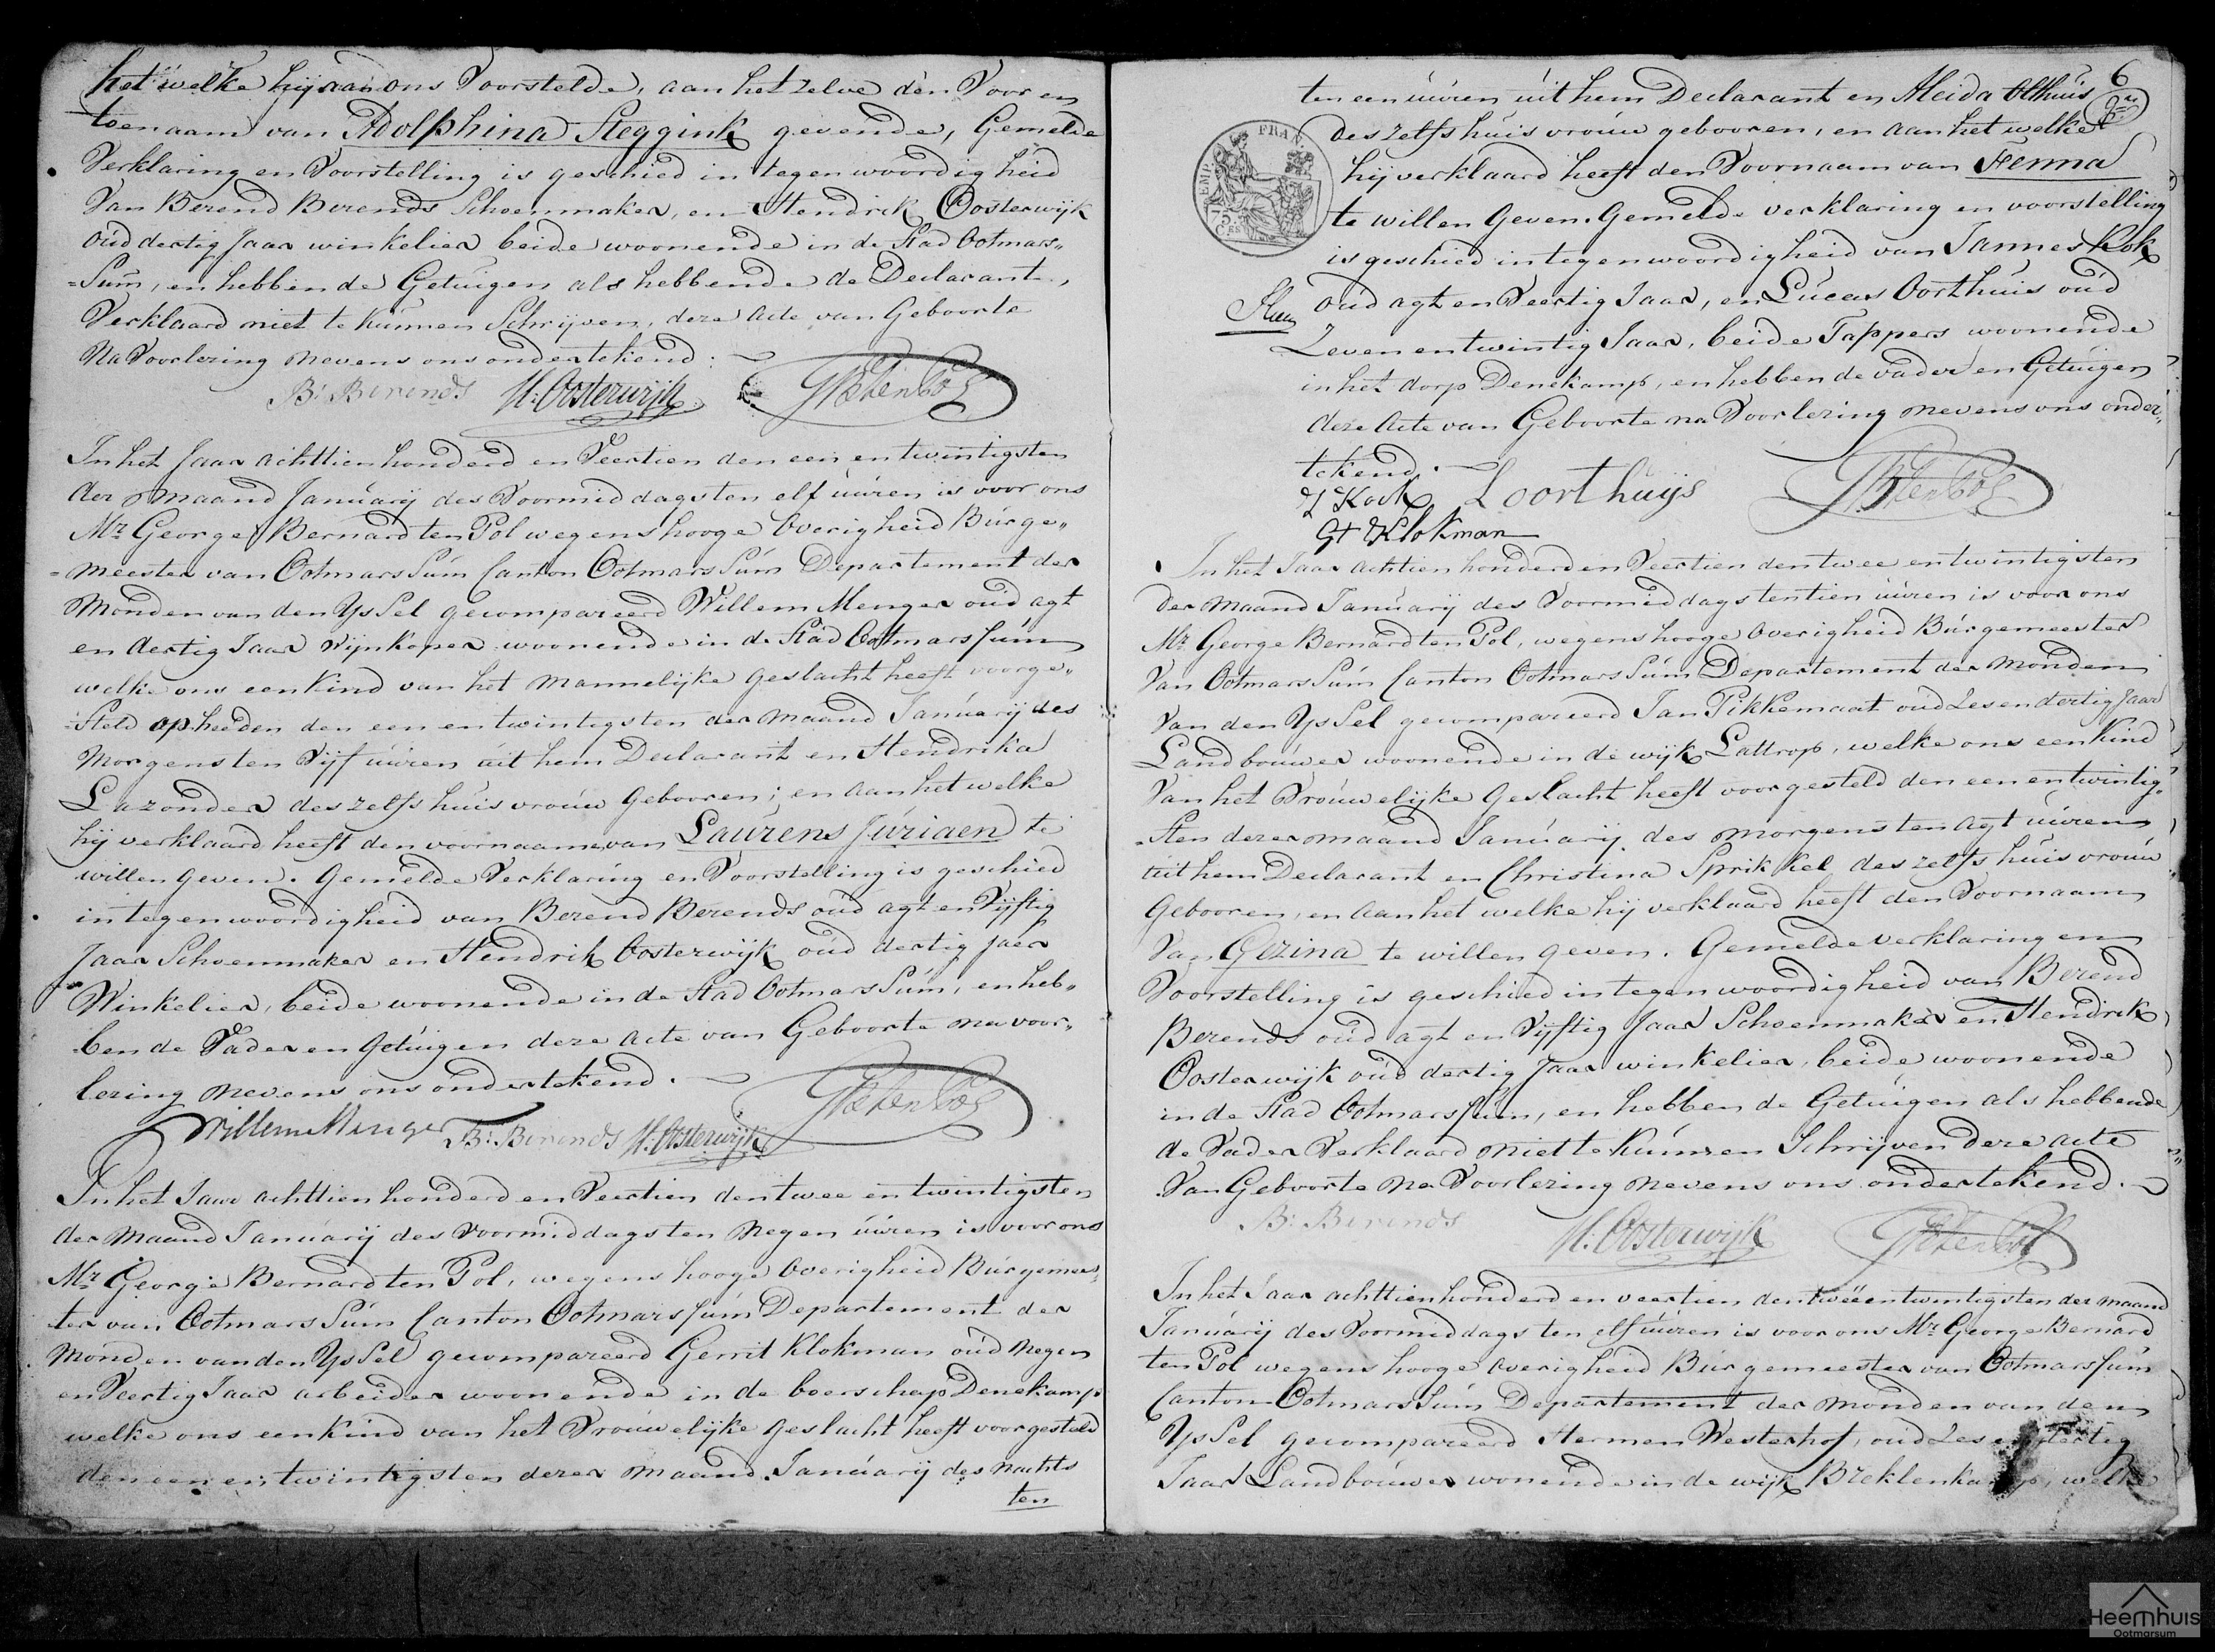 het welke hij aan ons Voorstelde, aan het zelve den Voor en
toenaam van Adolphina Steggink gevende, Gemelde
Verklaring en Voorstelling is geschied in tegenwoordigheid
Van Berend Berends Schoenmaker, en Hendrik Oosterwijk
oud dertig Jaar winkelier beide woonende in de Stad Ootmars„
„Sum, en hebben de Getuigen als hebbende de Declarante,
Verklaard niet te kunnen Schrijven, deze acte van Geboorte
Na Voorlezing nevens ons ondertekend.
B: Berends H: Oosterwijk GBtenPol
In het Jaar achttien honderd en Veertien den een en twintigsten
der maand January des Voormiddags ten elf uuren is voor ons
Mr George Bernard ten Pol wegens hooge Overigheid Burge„
„meester van OotmarsSum Canton OotmarsSum Departement der
Monden van den YsSel gecompareerd Willem Menger oud agt
en dertig Jaar Wijnkoper woonende in de Stad Ootmarssum
welke ons een kind van het Mannelijke geslacht heeft voorge„
„Steld op heeden den een en twintigsten der maand January des
Morgens ten Vijf uuren uit hem Declarant en Hendrika
Lazonder des zelfs huisvrouw gebooren; en aan het welke
hij verklaard heeft den voornaam van Laurens Juriaen te
willen geven. Gemelde Verklaring en Voorstelling is geschied
in tegenwoordigheid van Berend Berends oud agt en Vijftig
Jaar Schoenmaker en Hendrik Oosterwijk oud dertig Jaar
Winkelier, beide woonende in de Stad OotmarsSum, en heb„
ben de Vader en Getuigen deze acte van Geboorte na voor„
lezing nevens ons ondertekend.
Willem Menger B: Berends H: Oosterwijk GBtenPol
In het Jaar achttien honderd en Veertien den twee en twintigsten
der maand January des voormiddags ten Negen uuren is voor ons
Mr George Bernard ten Pol, wegens hooge Overigheid Burgemees„
ter van OotmarsSum Canton Ootmarssum Departement der
Monden van den YsSel gecompareerd Gerrit Klokman oud Negen
en Veertig Jaar arbeider woonende in de boerschap Denekamp
welke ons een kind van het Vrouwelijke geslacht heeft voorgesteld
den een en twintigsten dezer maand January des nachts
ten
6
ten een uuren uit hem Declarant en Aleida Olthuis
des zelfs huisvrouw gebooren, en aan het welke
hij verklaard heeft den Voornaam van Fenna
te willen Geven. Gemelde verklaring en voorstelling
is geschied in tegenwoordigheid van Jannes Kok
oud agt en Veertig Jaar, en Lucas Oorthuis oud
Zeven en twintig Jaar, beide Tappers woonende
in het dorp Denekamp, en hebben de vader en Getuigen
deze Acte van Geboorte na Voorlezing nevens ons onder„
tekend.
J Kock L oorthuys GBtenPol
Gt Klokman
FRAN.
75
CES
In het Jaar achtien honderd en Veertien den twee en twintigsten
der maand January des Voormiddags ten tien uuren is voor ons
Mr George Bernard ten Pol, wegens hooge Overigheid Burgemeester
Van OotmarsSum Canton OotmarsSum Departement der Monden
Van den YsSel gecompareerd Jan Pikkemaat oud Zes en dertig Jaar
Landbouwer woonende in de wijk Lattrop, welke ons een kind
Van het Vrouwelijke Geslacht heeft voorgesteld den een en twintig„
„Sten dezer maand January des morgens ten agt uuren
uit hem Declarant en Christina Sprikkel des zelfs huisvrouw
Gebooren, en aan het welke hij verklaard heeft den Voornaam
Van Gezina te willen geven. Gemelde verklaring en
Voorstelling is geschied in tegenwoordigheid van Berend
Berends oud agt en Vijftig Jaar Schoenmaker en Hendrik
Oosterwijk oud dertig Jaar winkelier, beide woonende
in de Stad Ootmarssum, en hebben de Getuigen als hebbende
de Vader Verklaard niet te kunnen Schrijven deze acte
Van Geboorte Na Voorlezing nevens ons ondertekend.
B: Berends H: Oosterwijk GBtenPol
In het Jaar achttien honderd en veertien den twee en twintigsten der maand
January des Voormiddags ten elf uuren is voor ons Mr George Bernard
ten Pol wegens hooge overigheid Burgemeester van Ootmarssum
Canton OotmarsSum Departement der monden van den
YsSel gecompareerd Hermen Westerhof, oud Zes en dertig
Jaar Landbouwer wonende in de wijk Breklenkamp, welke
Heemhuis
Ootmarsum